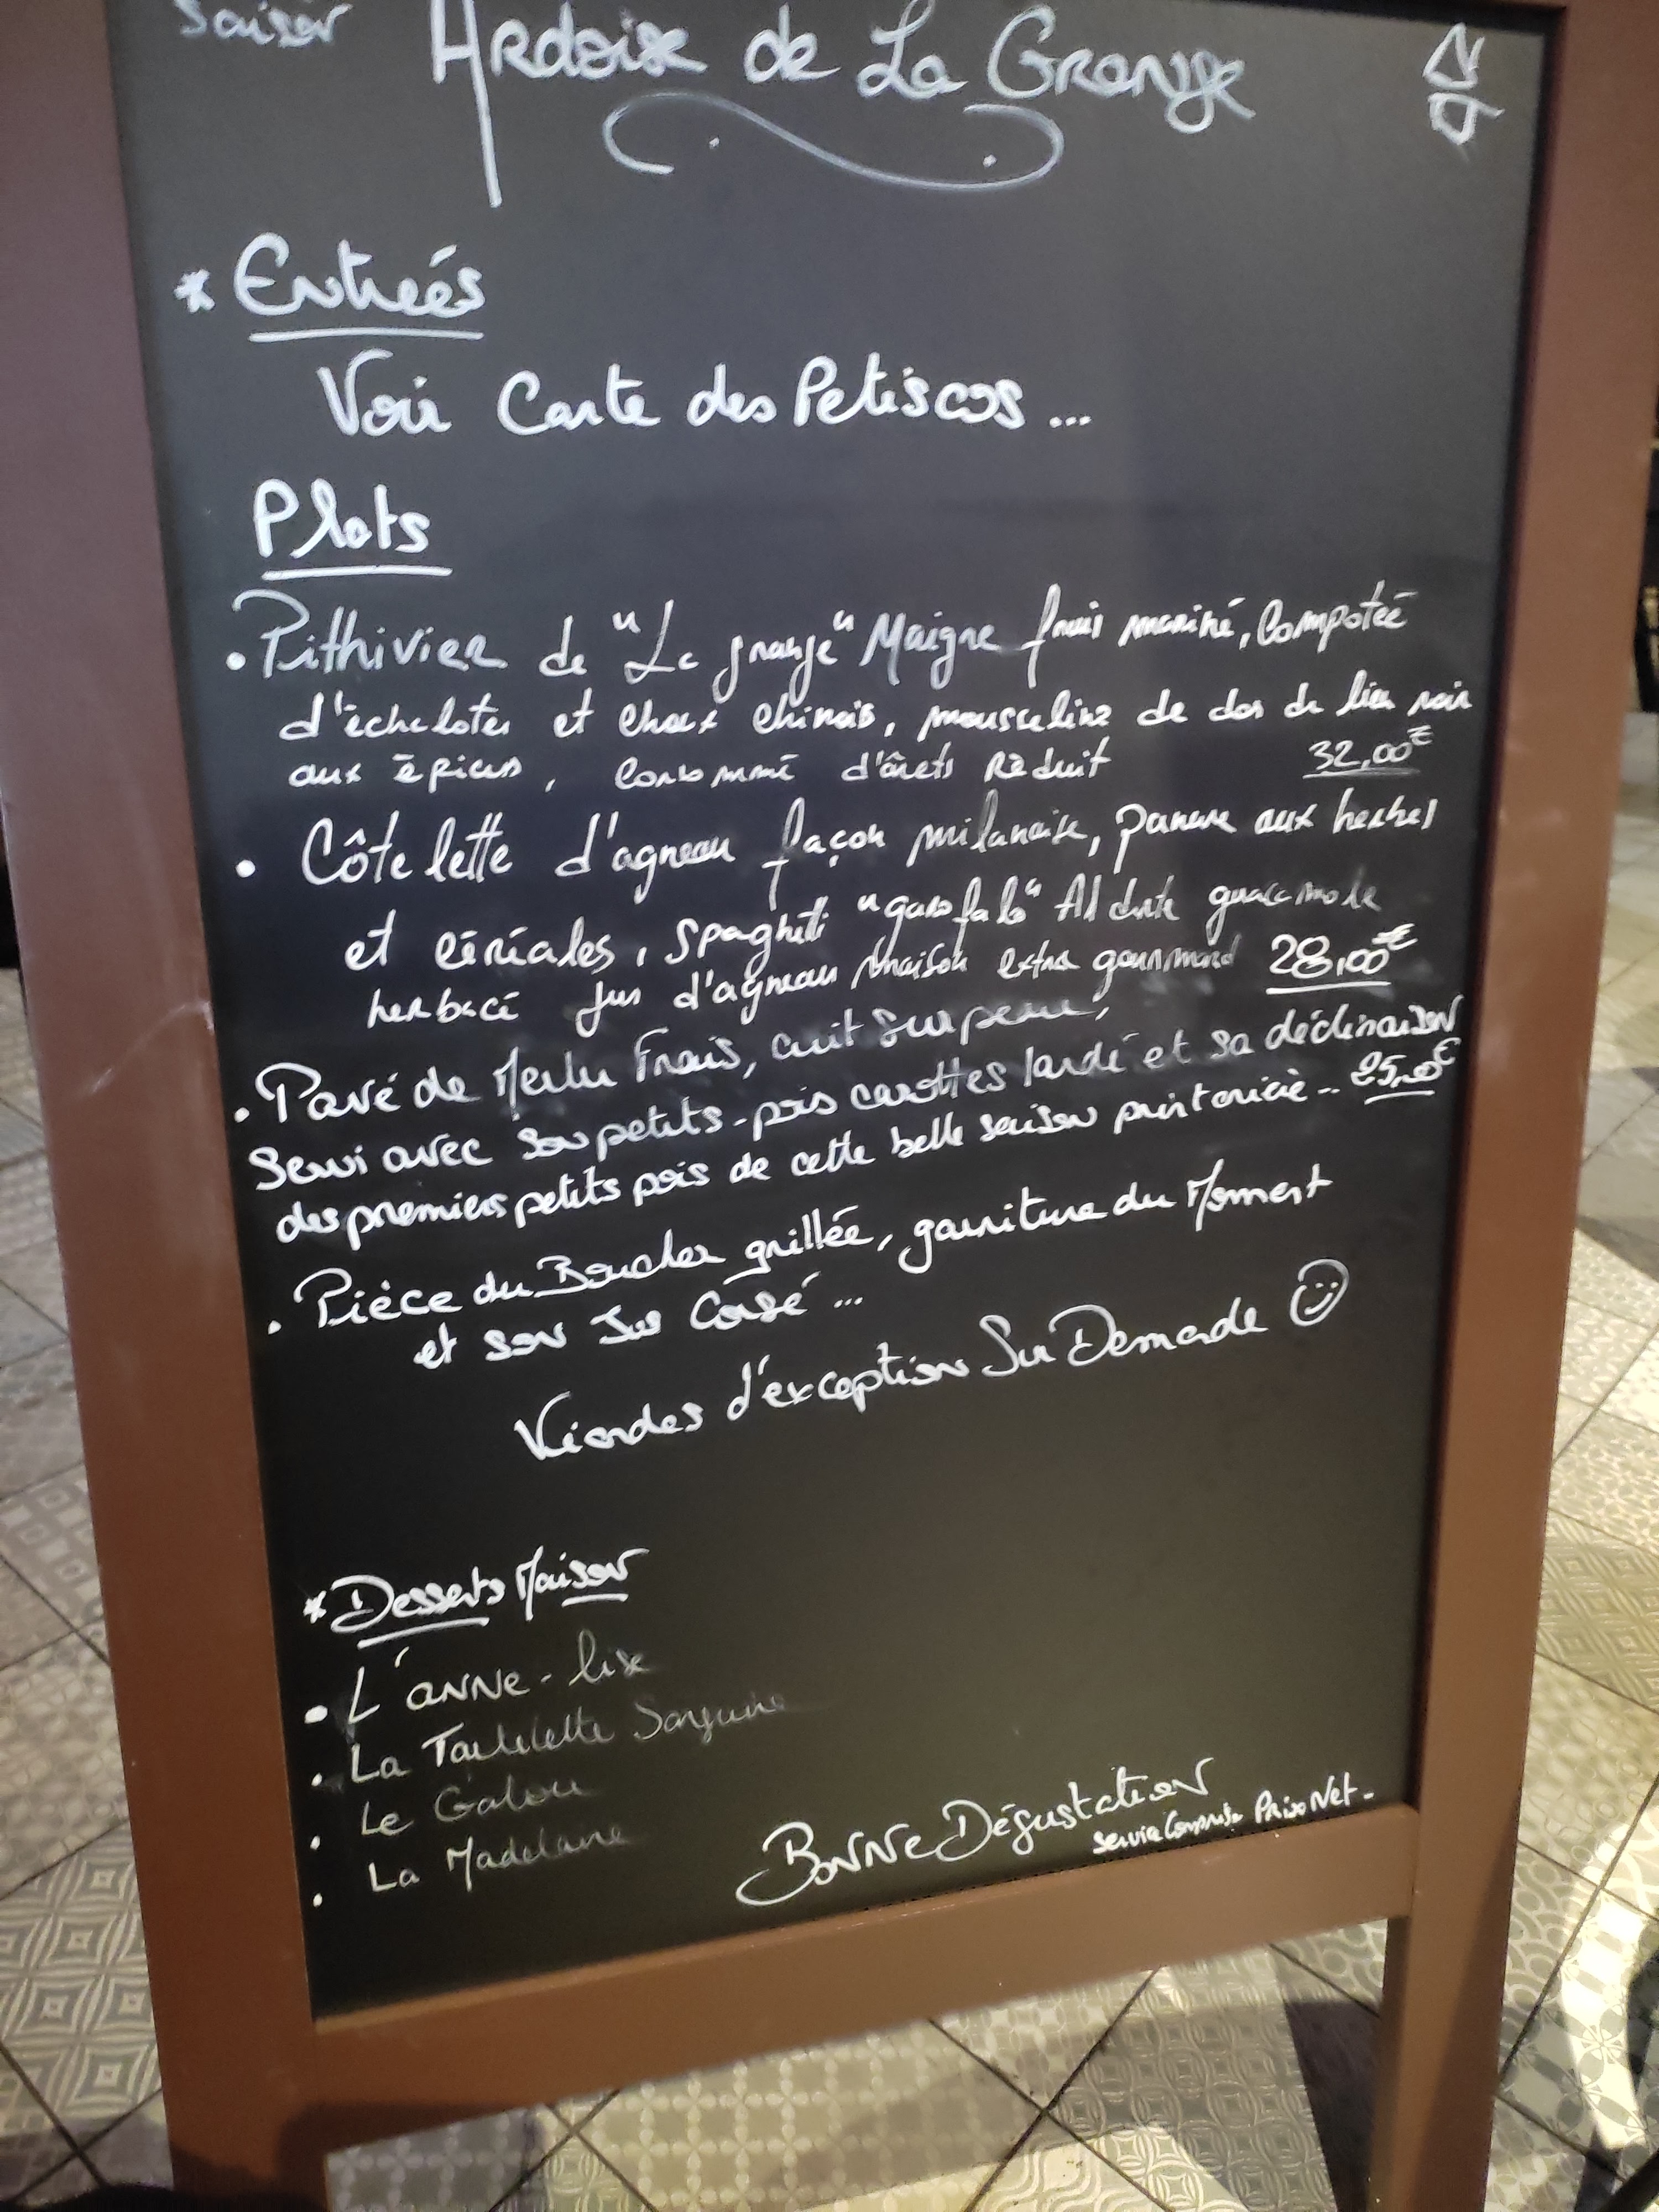 Saison Ardoise de La Grange
* Entreés
Voir Carte des Petiscos ...
Plats
• Pithivier de "La grange" Maigre frais mariné, Compoteé
d'échalotes et choux chinois, mousseline de dos de lieu noir
aux épices, Consommé d'ârets Réduit 32,00€
• Côtelette d'agneau façon milanaise, panure aux herbes
et céréales, Spaghetti "garofalo" Al dente guacamole
herbacé Jus d'agneau maison extra gourmand 28,00€
• Pavé de Merlu Frais, cuit sur peau,
Servi avec son petits-pois carottes lardé et sa déclinaison
des premiers petits pois de cette belle saison printanière .. 25,00€
• Pièce du Boucher grillée, garniture du Moment
et son Jus Corsé ...
Viandes d'exception Sur Demande
* Desserts Maison
• L'anne-lise
• La Tartelette Sanguine
• Le Galou
• La Madelaine
Bonne Dégustation
Service Comprise Prix Net-